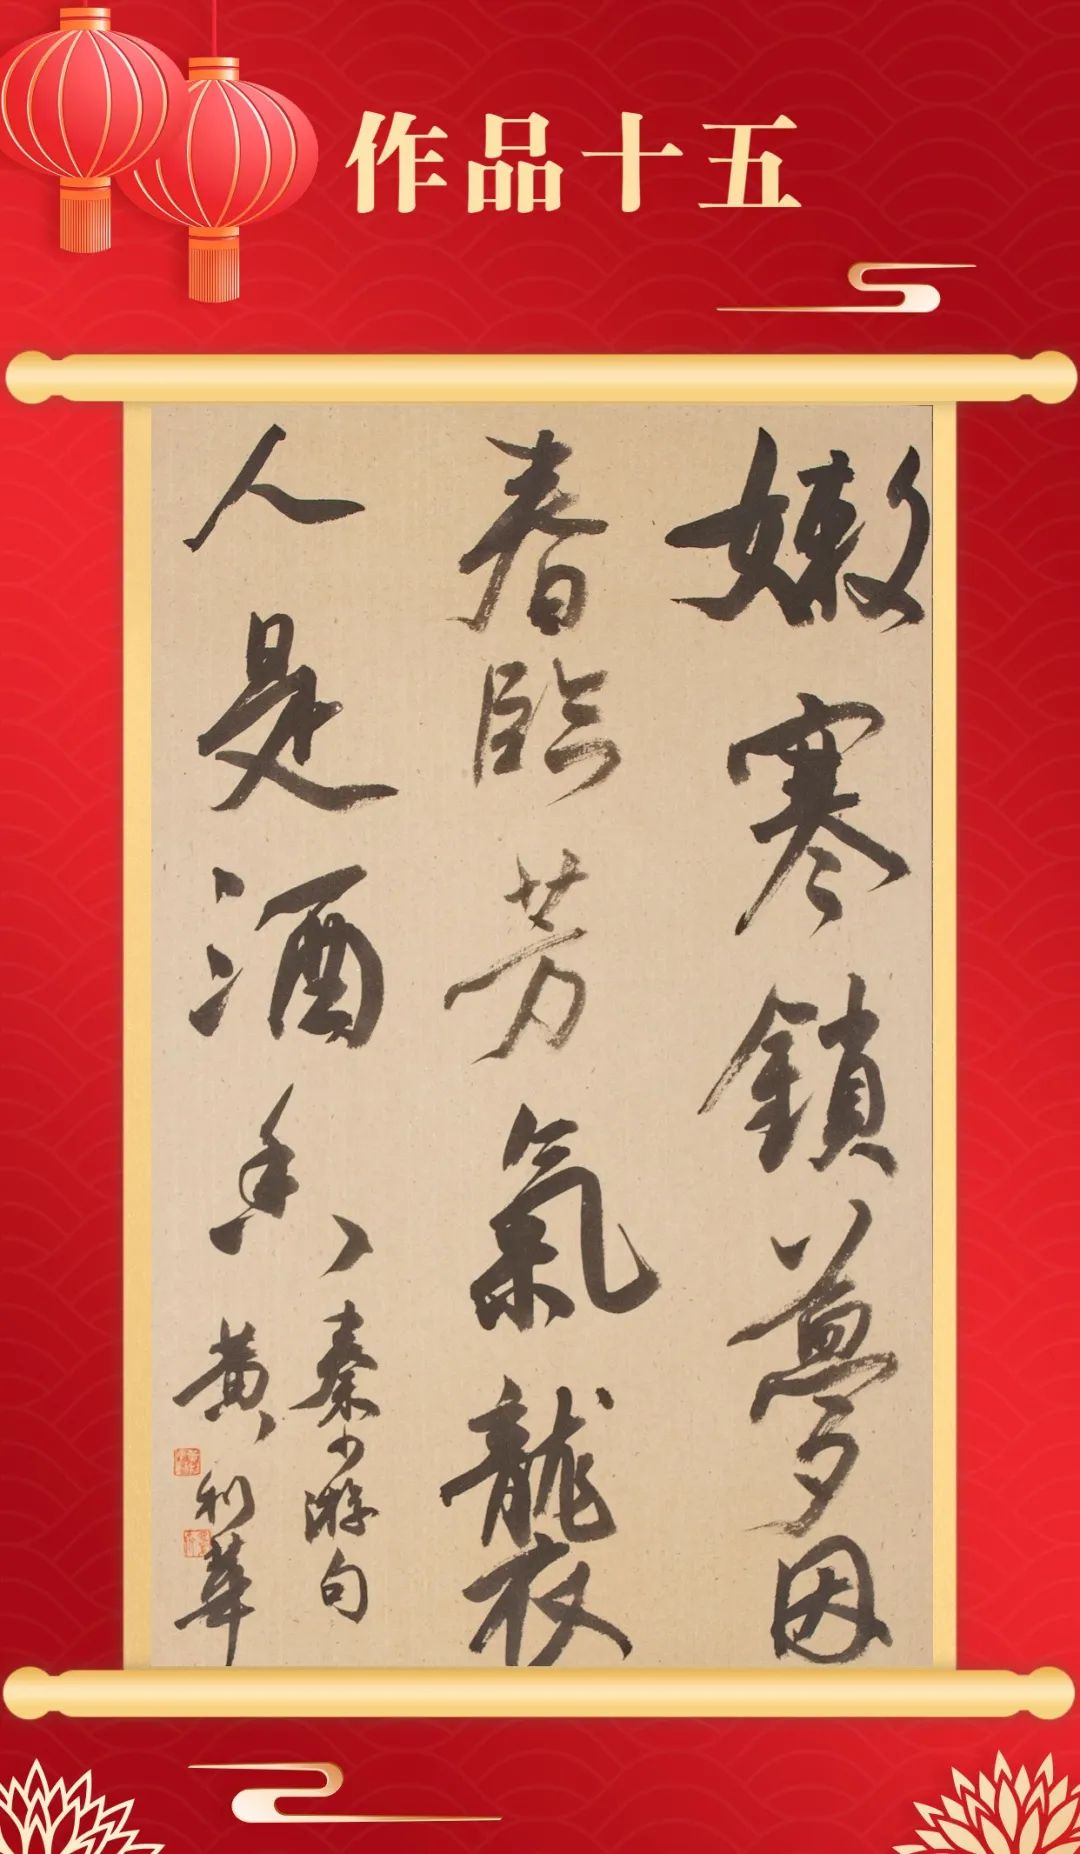 作品十五
嫩寒鎖夢因
春臨芳氣襲
人是酒香
秦少游句
黃利華